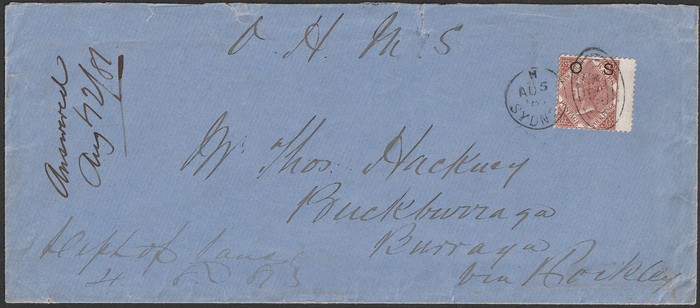 O. H. M. S
Answered
Aug 12/81
O S
H
AU 5
SYDNEY
Mr Thos. Hackney
Buckburraga
Burraga
via Rockley
Dept of Lands
4